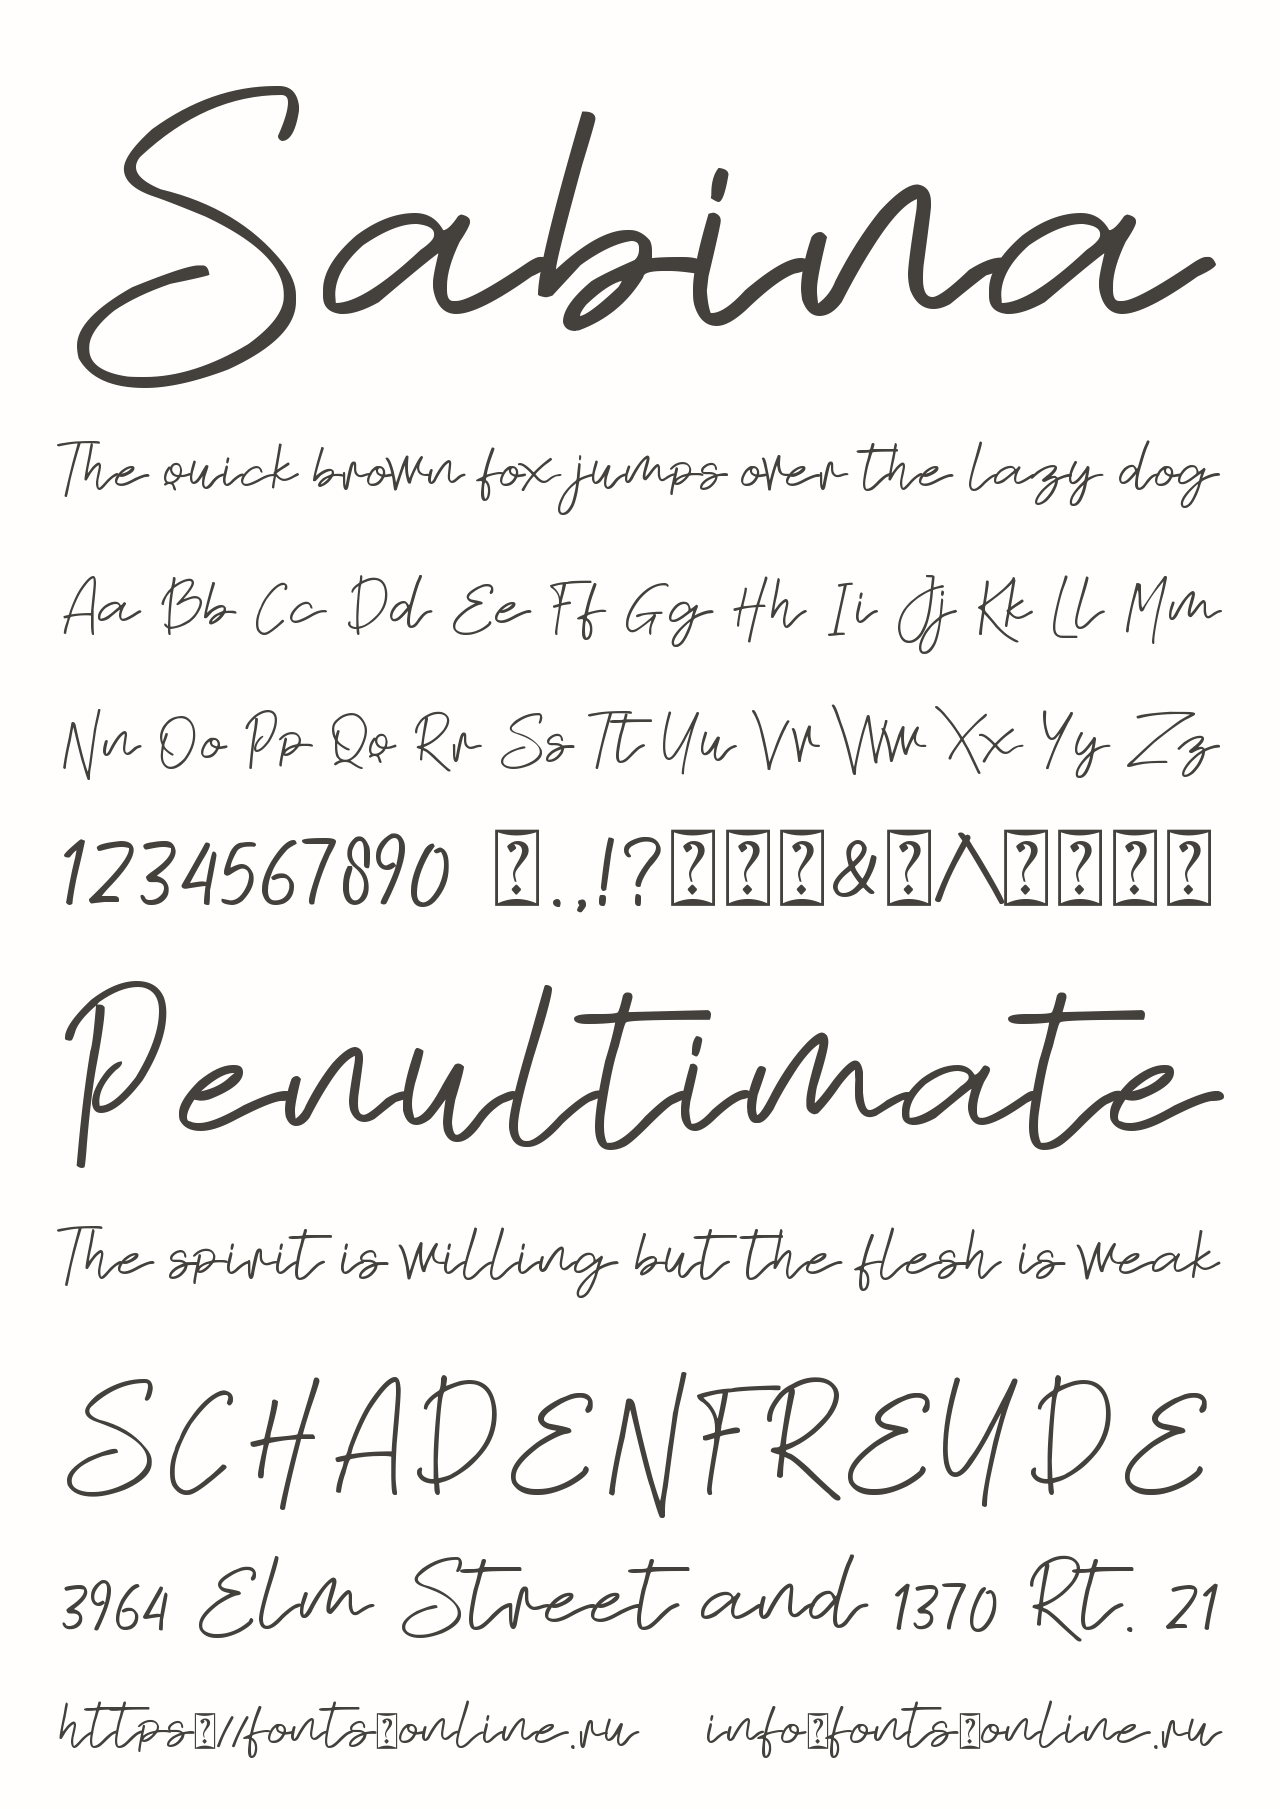 Sabina
The quick brown fox jumps over the lazy dog
Aa Bb Cc Dd Ee Ff Gg Hh Ii Jj Kk Ll Mm
Nn Oo Pp Qq Rr Ss Tt Uu Vv Ww Xx Yy Zz
1234567890 �.,!?���&�/\����
Penultimate
The spirit is willing but the flesh is weak
SCHADENFREUDE
3964 Elm Street and 1370 Rt. 21
https�//fonts�online.ru info�fonts�online.ru